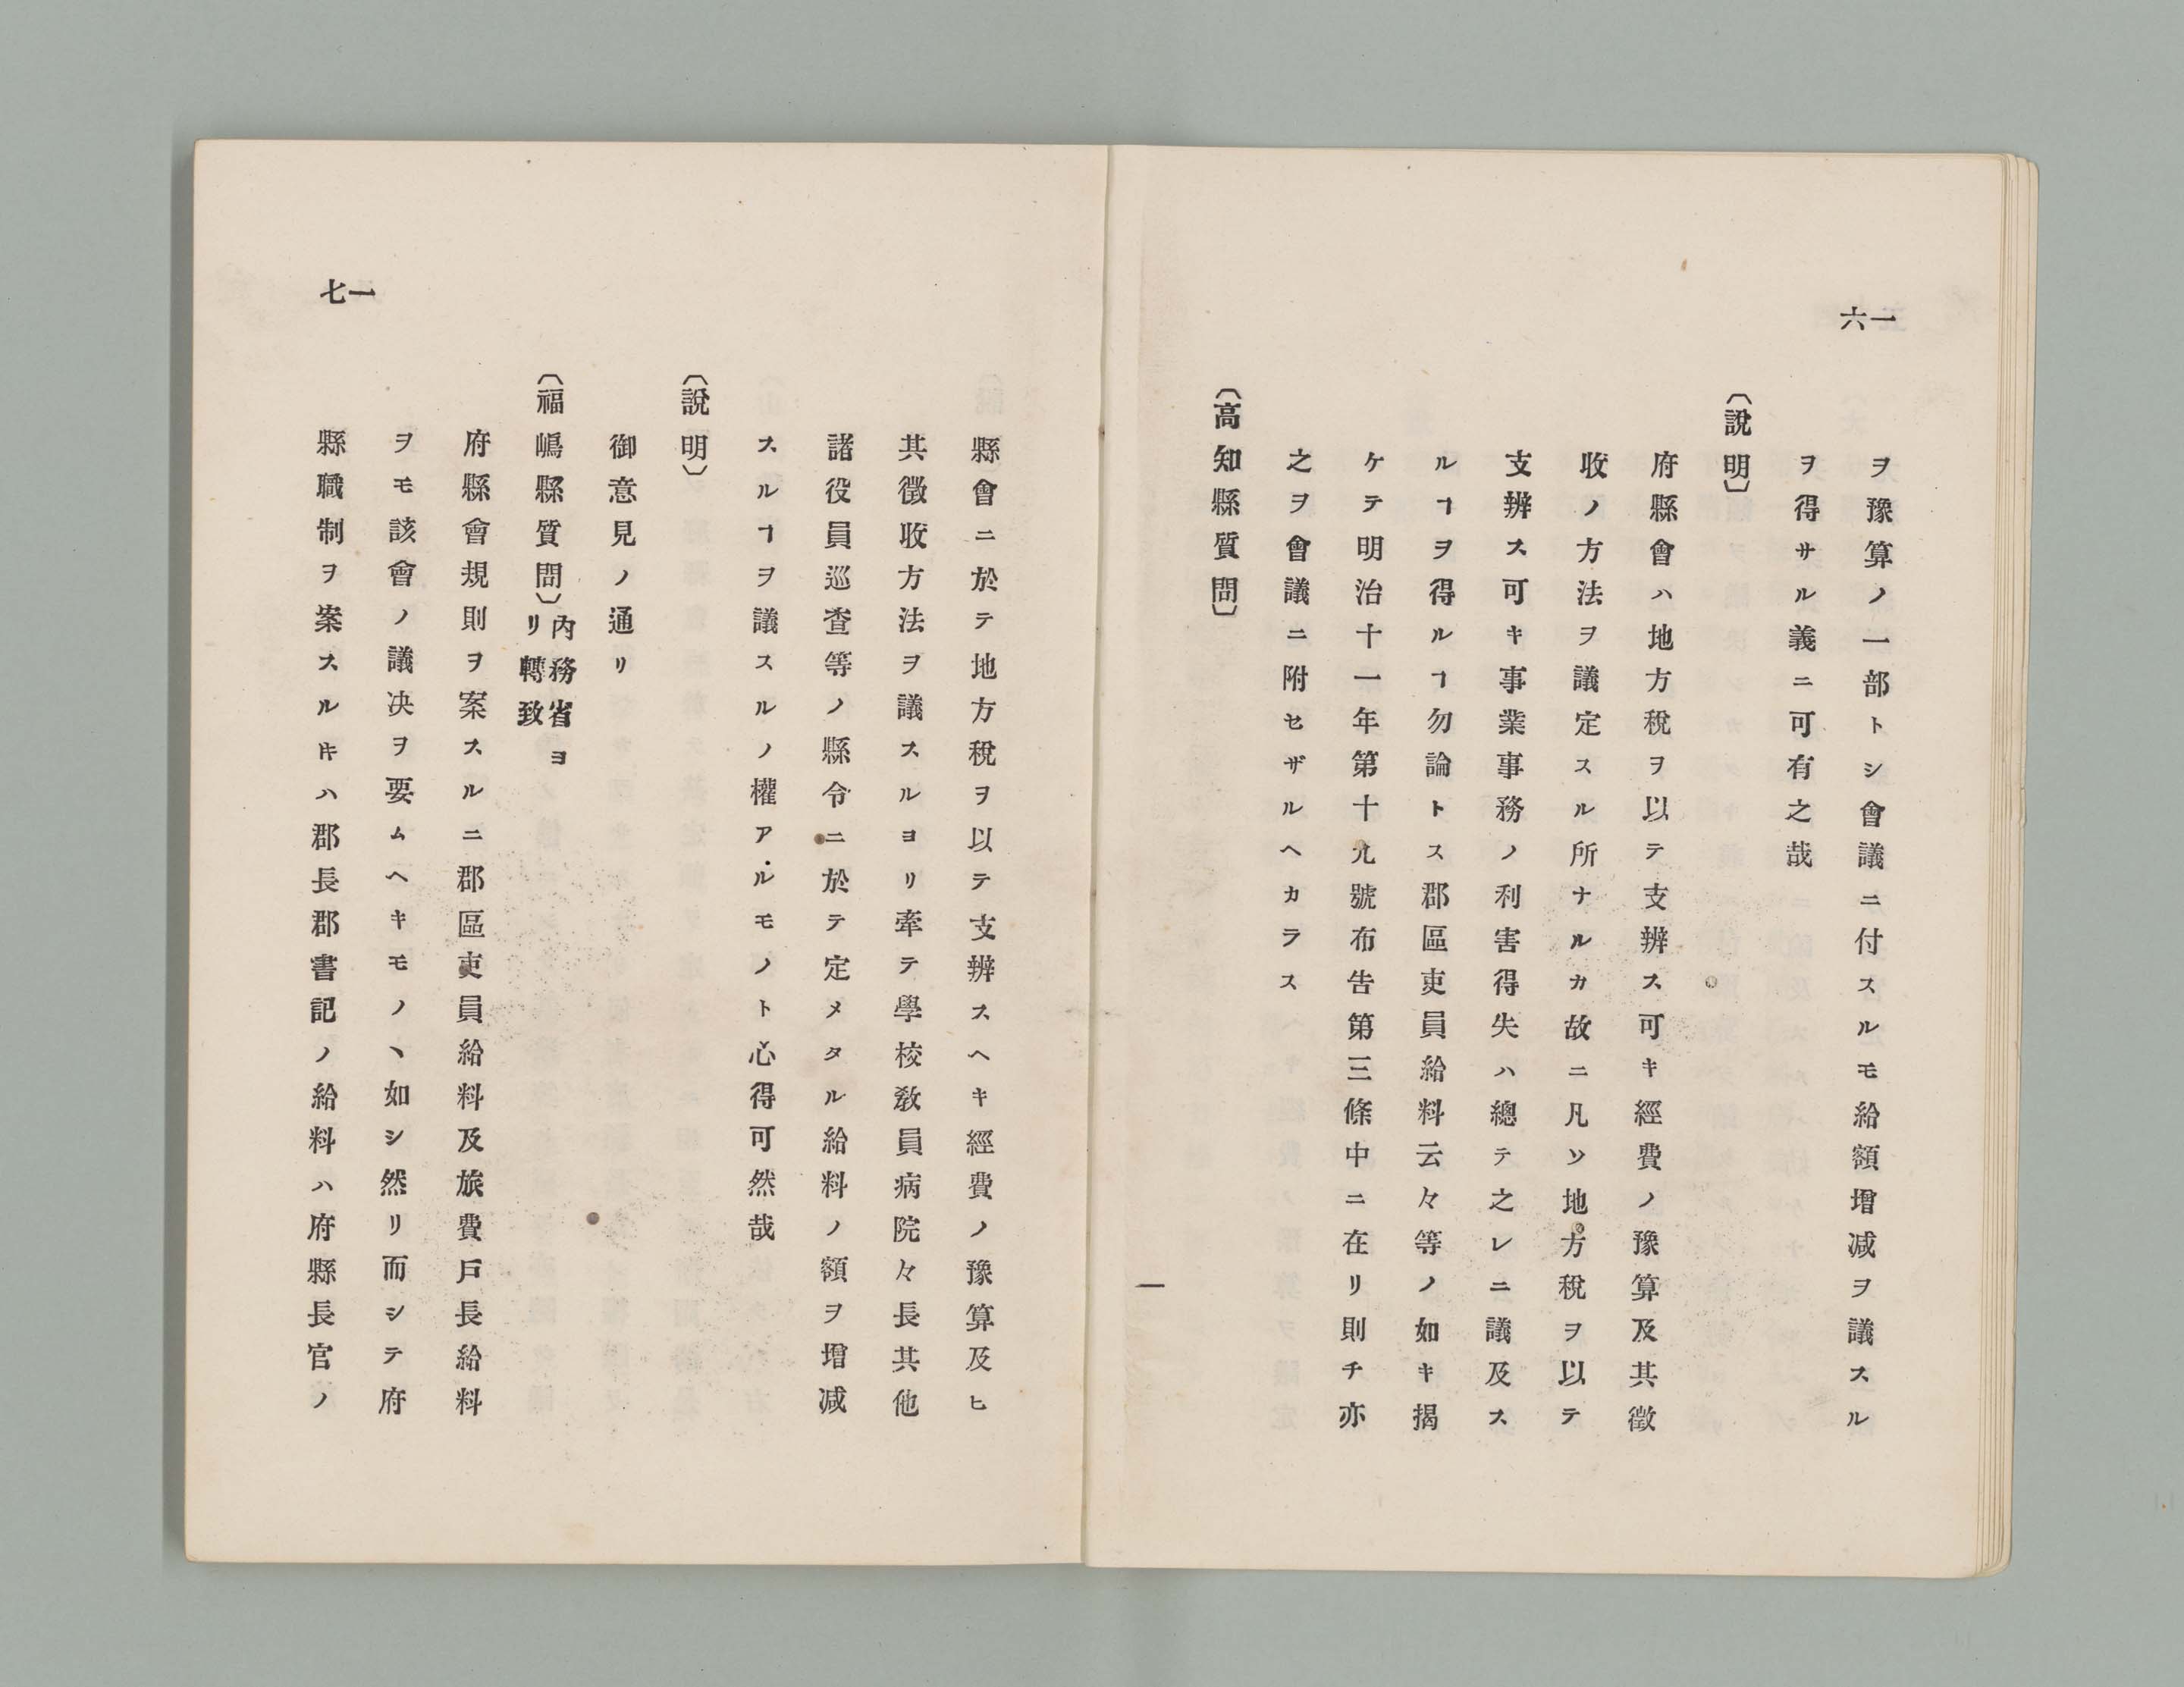 一六
ヲ豫算ノ一部トシ會議ニ付スルモ給額增减ヲ議スル
ヲ得サル義ニ可有之哉
〔說明〕
府縣會ハ地方稅ヲ以テ支辨ス可キ經費ノ豫算及其徵
收ノ方法ヲ議定スル所ナルカ故ニ凡ソ地方稅ヲ以テ
支辨ス可キ事業事務ノ利害得失ハ總テ之レニ議及ス
ルヿヲ得ルヿ勿論トス郡區吏員給料云々等ノ如キ揭
ケテ明治十一年第十九號布告第三條中ニ在リ則チ亦
之ヲ會議ニ附セザルヘカラス
〔高知縣質問〕
一
一七
縣會ニ於テ地方稅ヲ以テ支辨スヘキ經費ノ豫算及ヒ
其徵收方法ヲ議スルヨリ牽テ學校敎員病院々長其他
諸役員巡查等ノ縣令ニ於テ定メタル給料ノ額ヲ增减
スルヿヲ議スルノ權アルモノト心得可然哉
〔說明〕
御意見ノ通リ
〔福嶋縣質問〕內務省ヨリ轉致
府縣會規則ヲ案スルニ郡區吏員給料及旅費戶長給料
ヲモ該會ノ議决ヲ要ムヘキモノヽ如シ然リ而シテ府
縣職制ヲ案スルニ𪜈ハ郡長郡書記ノ給料ハ府縣長官ノ